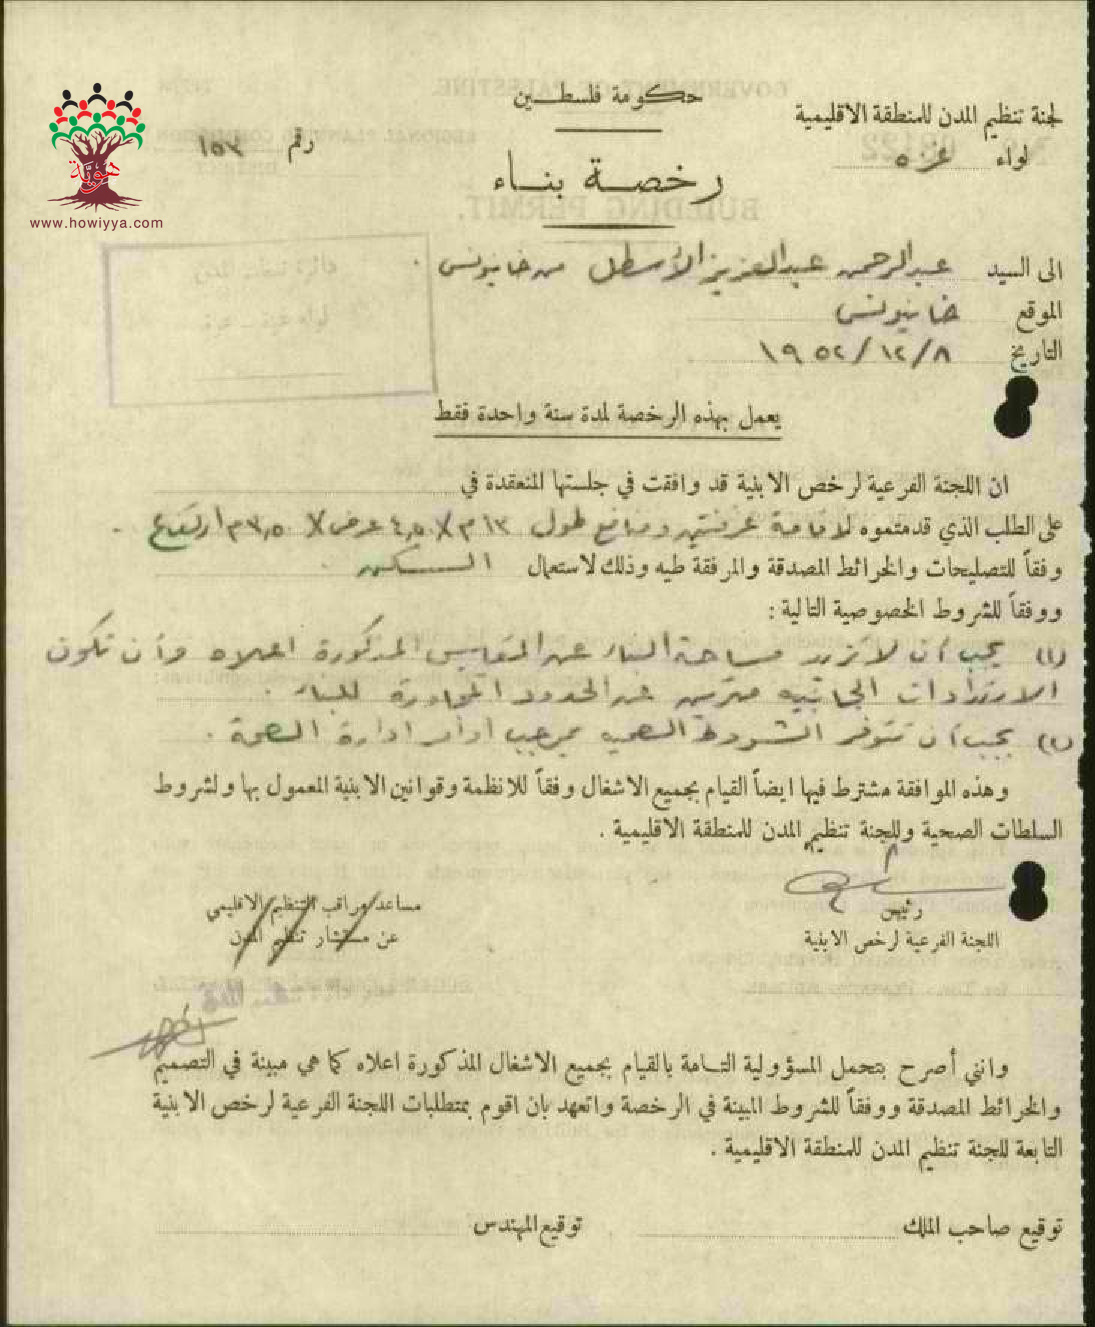 حكومة فلسطين
لجنة تنظيم المدن للمنطقة الاقليمية
لواء غزة
رقم ١٥٣
رخصة بناء
هوية
www.howiyya.com
الى السيد عبدالرحمن عبدالعزيز الأسطل من خانيونس .
الموقع خانيونس
التاريخ ٨/١٢/١٩٥٢
يعمل بهذه الرخصة لمدة سنة واحدة فقط
ان اللجنة الفرعية لرخص الابنية قد وافقت في جلستها المنعقدة في
على الطلب الذي قدمتموه لاقامة غرفتين ومنافع طول ١٣م X ٤,٥ عرض X ٣,٥٠م ارتفاع .
وفقاً للتصليحات والخرائط المصدقة والمرفقة طيه وذلك لاستعمال السكن .
ووفقاً للشروط الخصوصية التالية :
(١) يجب أن لا تزيد مساحة البناء عن المقاييس المذكورة اعلاه وأن تكون
الارتدادات الجانبيه مترين عن الحدود المجاورة للبناء .
(٢) يجب أن تتوفر الشروط الصحيه بموجب أوامر ادارة الصحة .
وهذه الموافقة مشترط فيها ايضاً القيام بجميع الاشغال وفقاً للانظمة وقوانين الابنية المعمول بها ولشروط
السلطات الصحية وللجنة تنظيم المدن للمنطقة الاقليمية .
رئيس
اللجنة الفرعية لرخص الابنية
مساعد مراقب التنظيم الاقليمي
عن مستشار تنظيم المدن
وانني أصرح بتحمل المسؤولية التامة بالقيام بجميع الاشغال المذكورة اعلاه كما هي مبينة في التصميم
والخرائط المصدقة ووفقاً للشروط المبينة في الرخصة واتعهد بان اقوم بمتطلبات اللجنة الفرعية لرخص الابنية
التابعة للجنة تنظيم المدن للمنطقة الاقليمية .
توقيع صاحب الملك
توقيع المهندس